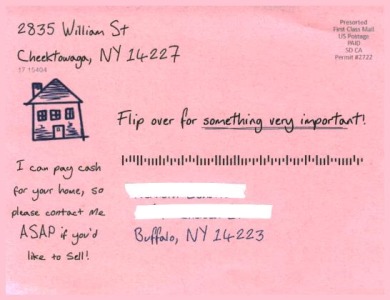 2835 William St
Cheektowaga, NY 14227
17 15404
Presorted
First Class Mail
US Postage
PAID
SD CA
Permit #2722
Flip over for something very important!
I can pay cash
for your home, so
please contact me
ASAP if you'd
like to sell!
Buffalo, NY 14223